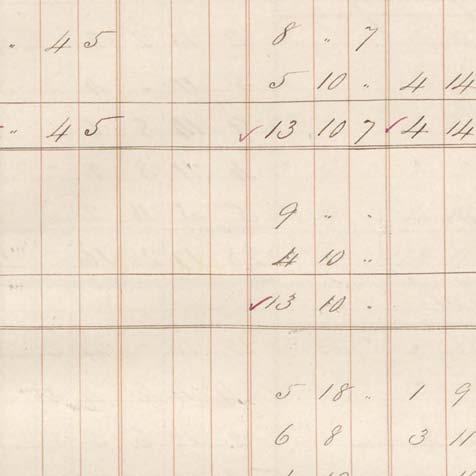 " 4 5 8 " 7
5 10 " 4 14
" 4 5 ✓ 13 10 7 ✓ 4 14
9 " "
4 10 "
✓ 13 10 "
5 18 " 1 9
6 8 3 11